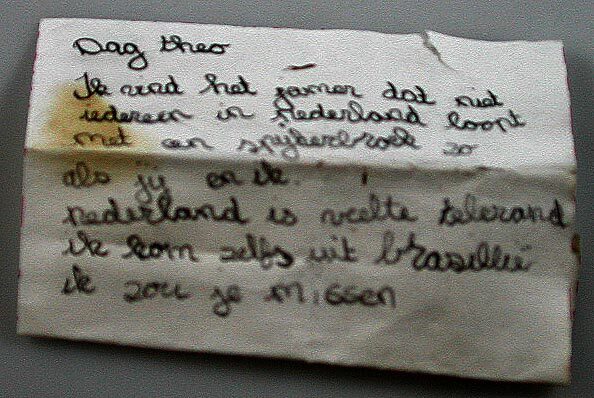 Dag theo
Ik vind het jamer dat niet
iedereen in Nederland loopt
met een spijkerbroek zo
als jij en ik.
nederland is veelte tolerand
ik kom zelfs uit brasillië
ik zou je missen